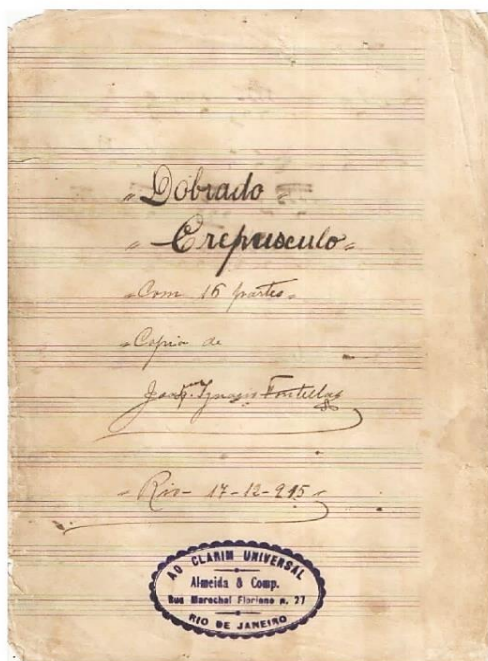 "Dobrado"
"Crepusculo"
"Com 16 partes"
"Copia de
Joaqm. Ignacio Fontellas
"Rio - 17-12-915"
AO CLARIM UNIVERSAL
Almeida & Comp.
Rua Marechal Floriano n. 77
RIO DE JANEIRO